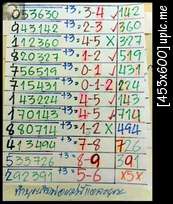 053630 +3= 3-4 ✓ 142
943142 +3= 2-3 ✓ 360
112360 +3= 4-5 X 327
820327 +3= 1-2 ✓ 519
756519 +3= 0-1 ✓ 431
715431 +3= 0-1-2 224
143224 +3= 4-5 ✓ 143
170143 +3= 4-5 ✓ 714
880714 +3= 1-2 X 494
413494 +3= 7-8 726
535726 8-9 391
292391 5-6 x5x
[453x600] upic.me